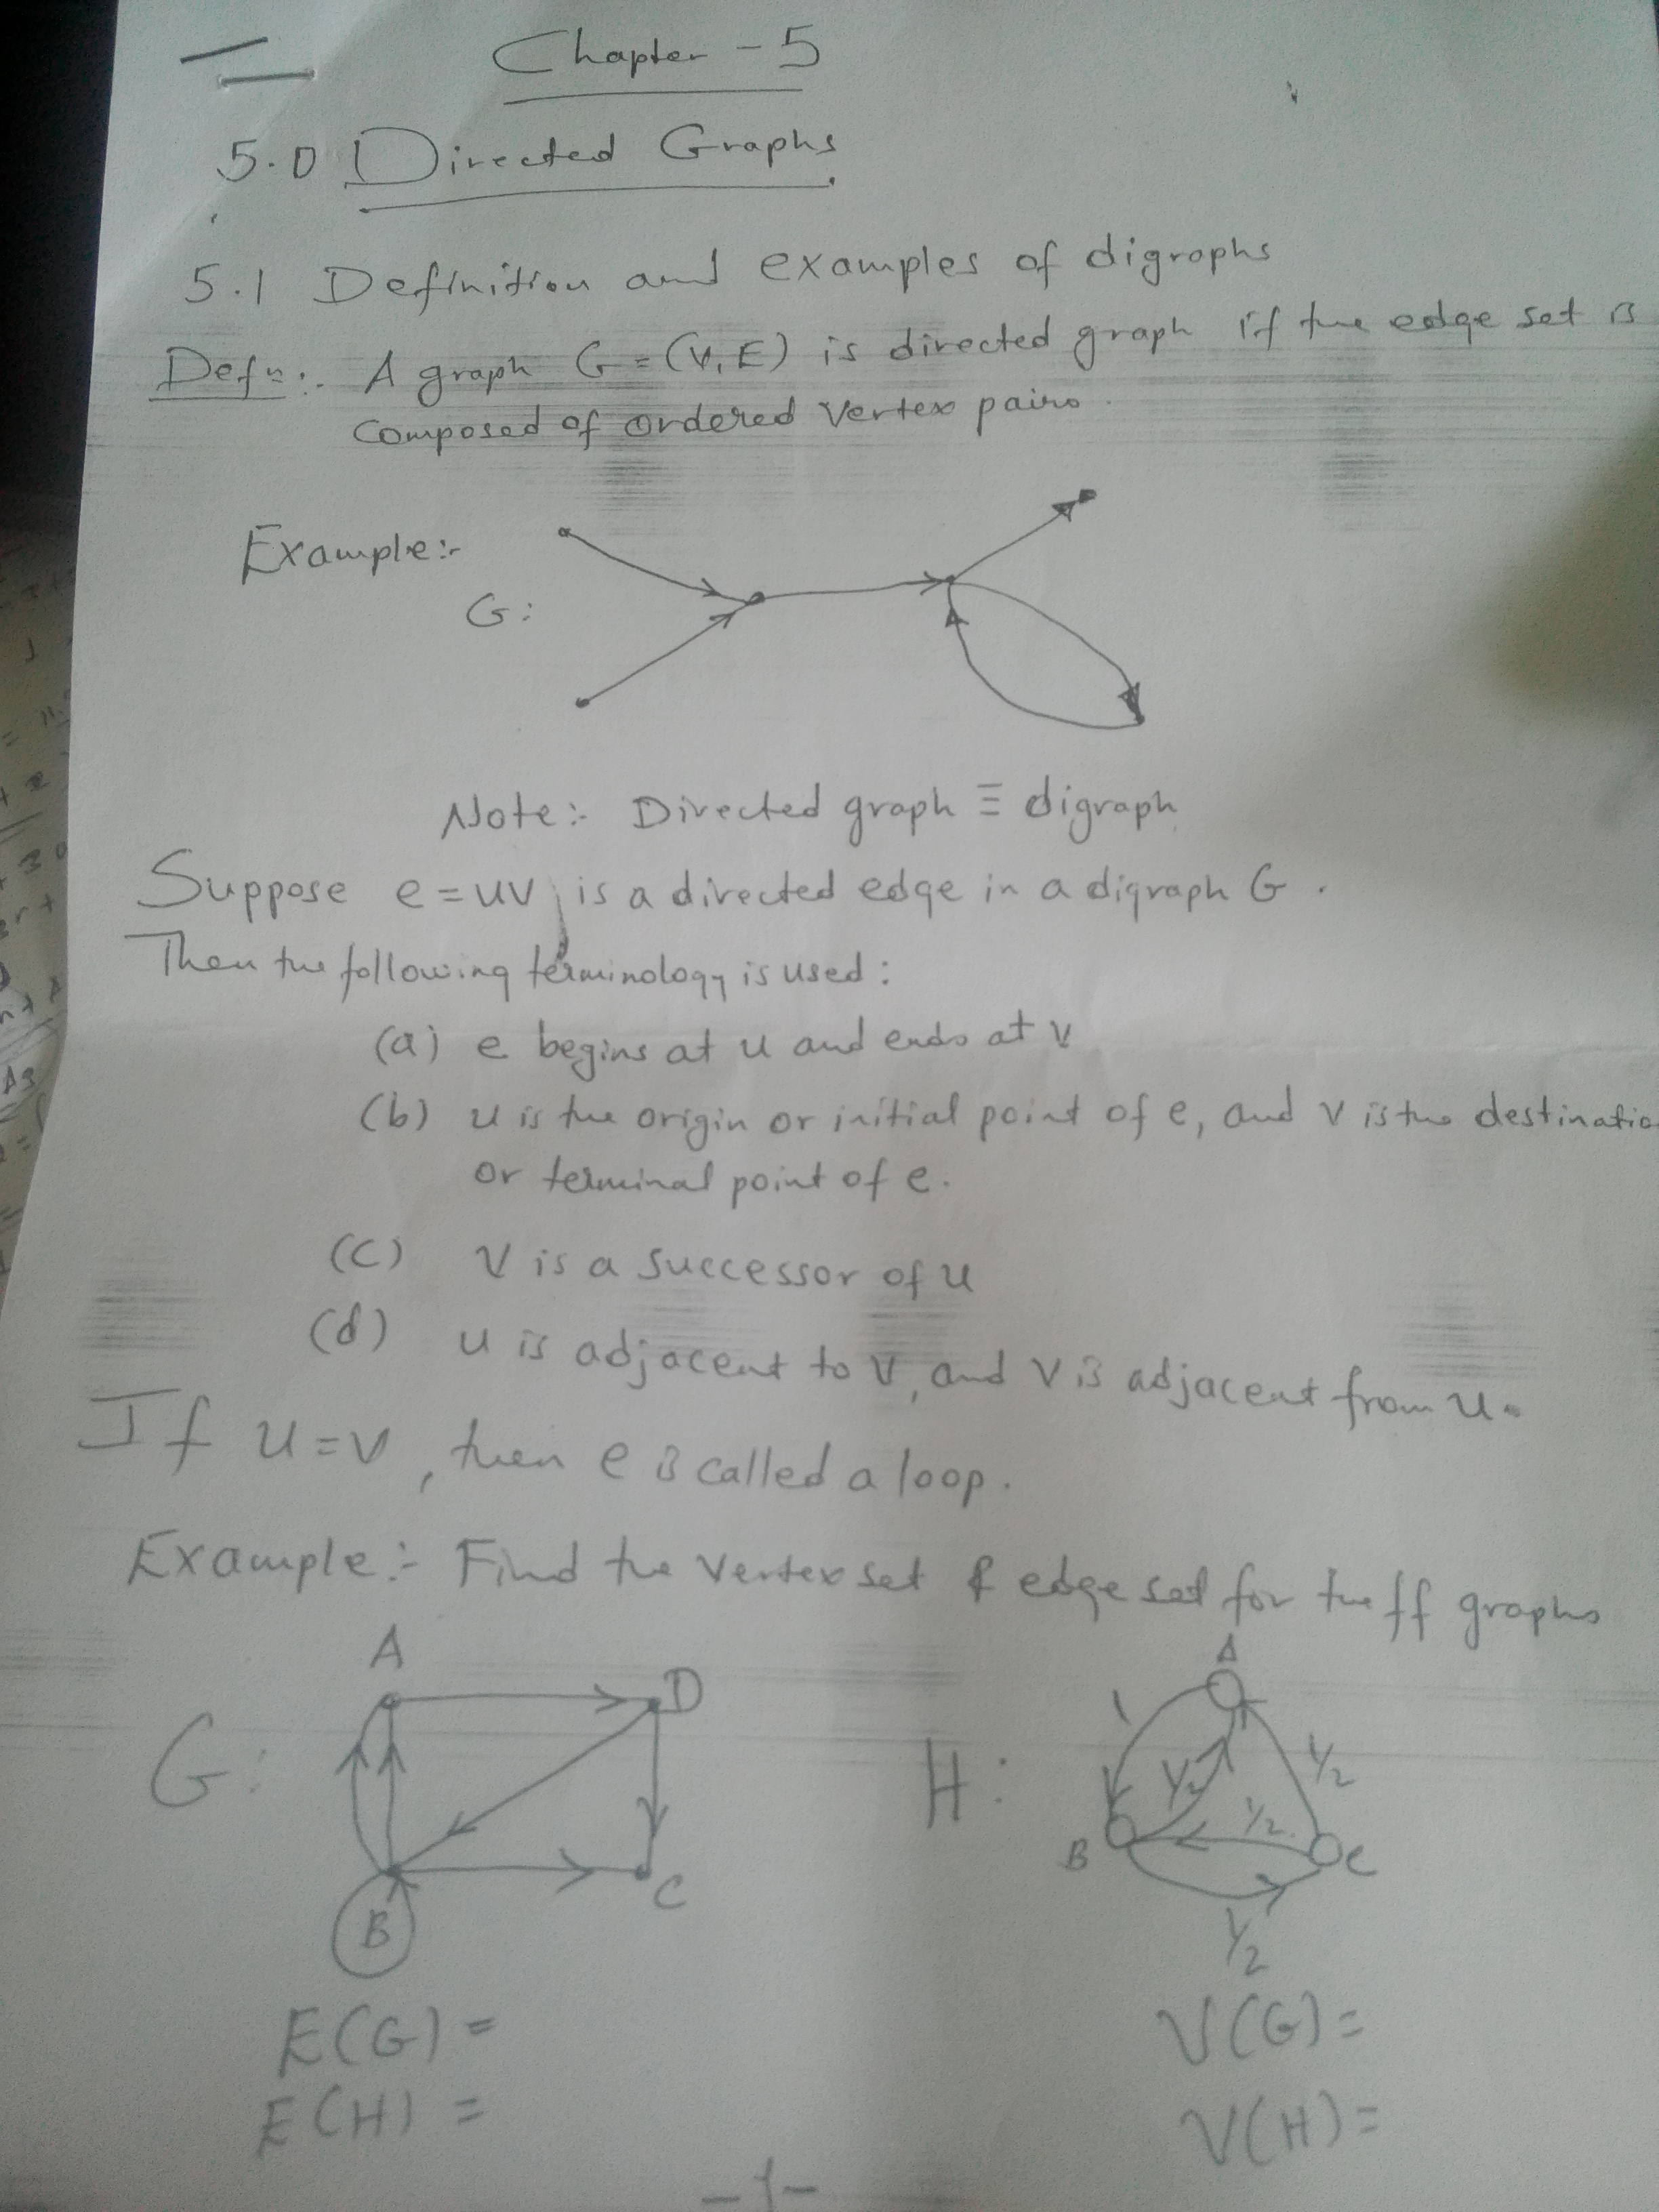 Chapter - 5
5.0 Directed Graphs
5.1 Definition and examples of digraphs
Defn:. A graph G = (V, E) is directed graph if the edge set is
composed of ordered vertex pairs.
Example:-
G:
Note:- Directed graph ≡ digraph
Suppose e = uv is a directed edge in a digraph G.
Then the following terminology is used:
(a) e begins at u and ends at v
(b) u is the origin or initial point of e, and v is the destinatio
or terminal point of e.
(c) v is a successor of u
(d) u is adjacent to v, and v is adjacent from u.
If u = v, then e is called a loop.
Example:- Find the vertex set & edge set for the ff graphs
A
D
G:
B
C
A
1
1/2
H:
1/2
1/2
B
C
1/2
E(G) =
V(G) =
E(H) =
V(H) =
-1-